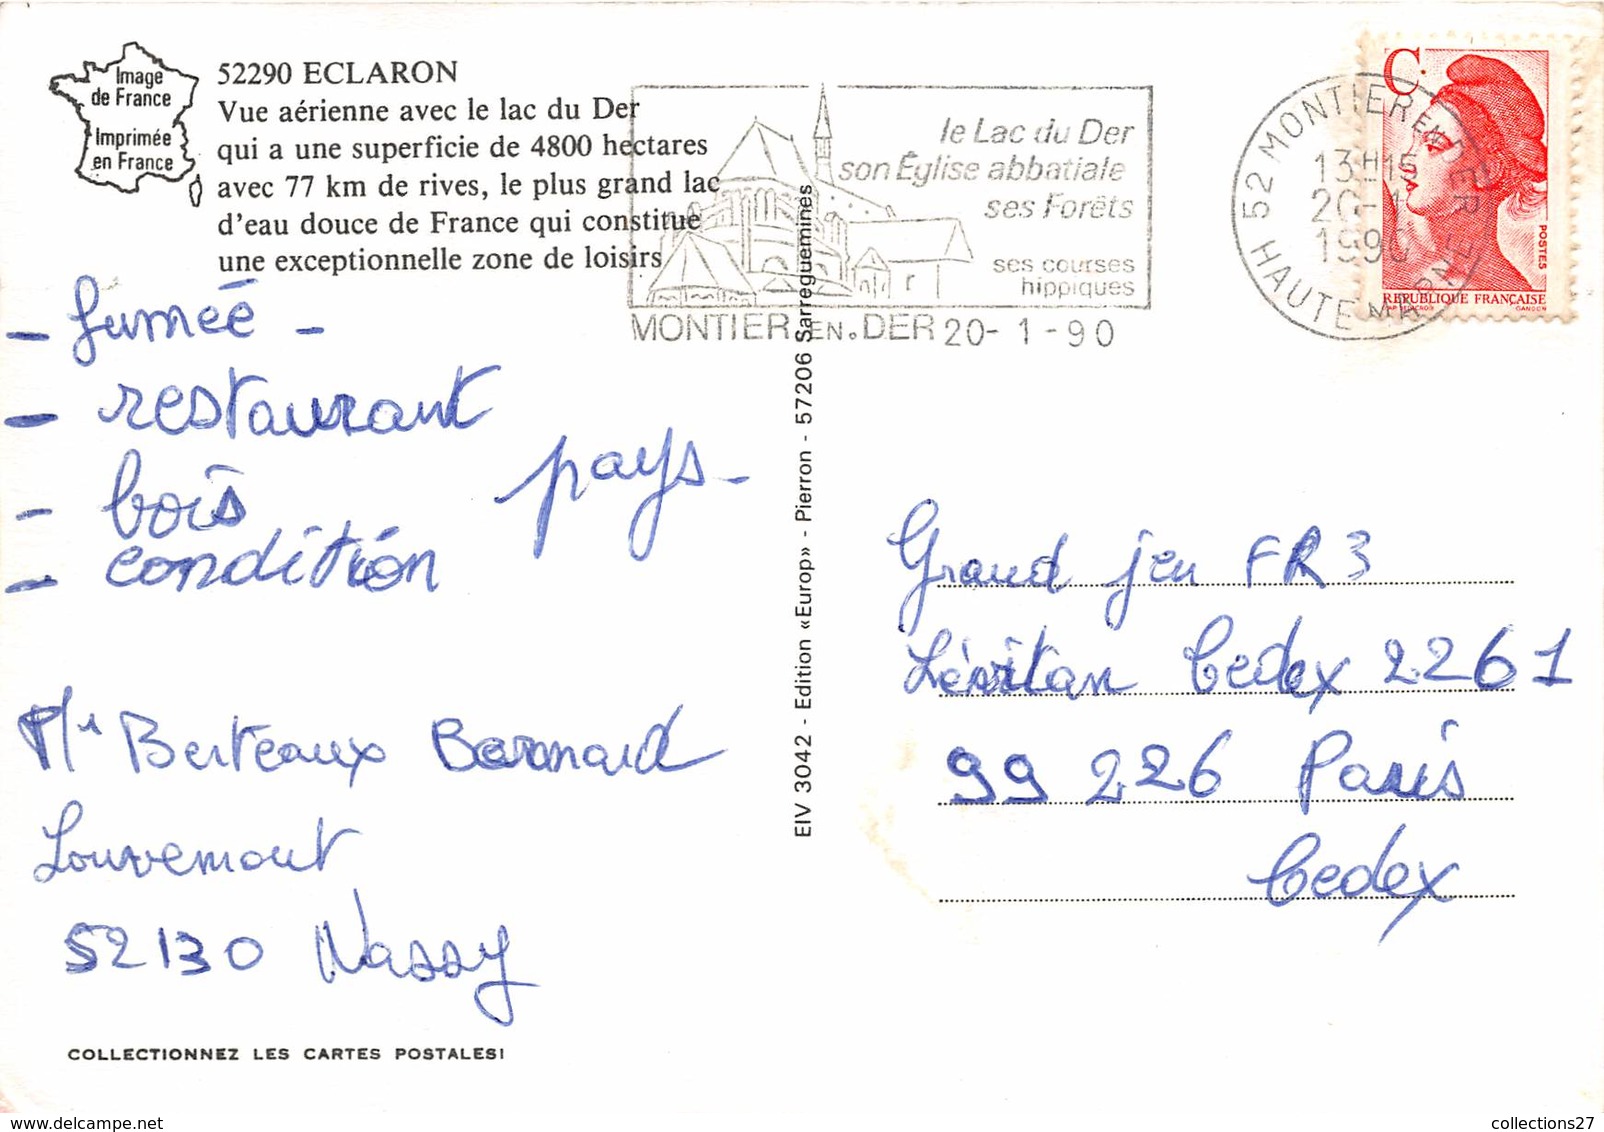 Image
de France
Imprimée
en France
52290 ECLARON
Vue aérienne avec le lac du Der
qui a une superficie de 4800 hectares
avec 77 km de rives, le plus grand lac
d'eau douce de France qui constitue
une exceptionnelle zone de loisirs
le Lac du Der
son Église abbatiale
ses Forêts
ses courses
hippiques
MONTIER EN. DER 20-1-90
52 MONTIER EN DER
HAUTE MARNE
13H15
20-1
1990
C
POSTES
REPUBLIQUE FRANÇAISE
GANDON
- fumée -
- restaurant
- bois pays -
- condition
Mr Berteaux Bernard
Louvemont
52130 Wassy
COLLECTIONNEZ LES CARTES POSTALES!
EIV 3042 - Edition «Europ» - Pierron - 57206 Sarreguemines
Grand jeu FR3
Lévitan Cedex 2261
99 226 Paris
Cedex
collections27